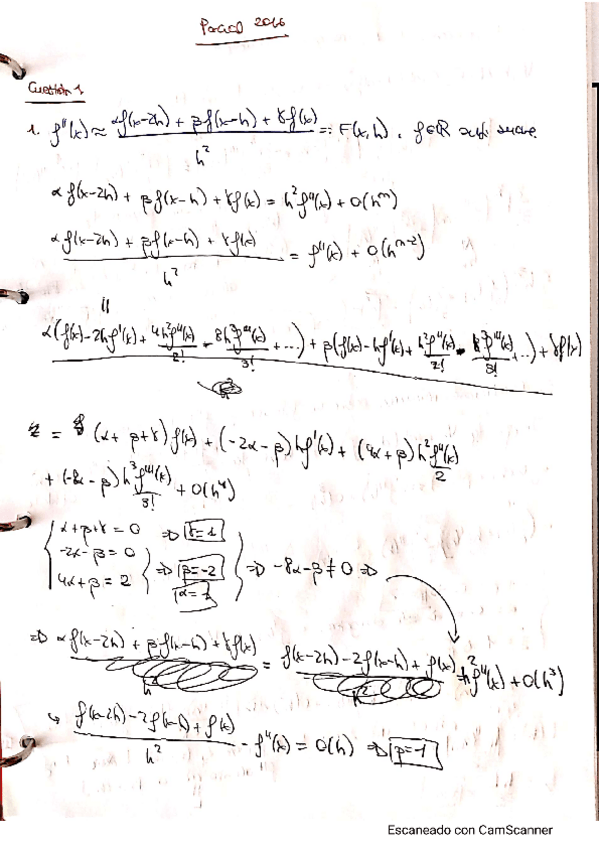 Parcial 2016
Cuestión 1
1. f''(x) ≈ (αf(x-2h) + βf(x-h) + γf(x)) / h² =: F(x,h), f∈R sufi. suave
αf(x-2h) + βf(x-h) + γf(x) = h²f''(x) + O(h^m)
(αf(x-2h) + βf(x-h) + γf(x)) / h² = f''(x) + O(h^(m-2))
||
α(f(x) - 2hf'(x) + 4h²f''(x)/2! - 8h³f'''(x)/3! + ...) + β(f(x) - hf'(x) + h²f''(x)/2! - h³f'''(x)/3! + ...) + γf(x)
= (α+β+γ)f(x) + (-2α-β)hf'(x) + (4α+β)h²f''(x)/2
+ (-8α-β)h³f'''(x)/3! + O(h⁴)
{ α+β+γ = 0 ⇒ γ=1
-2α-β = 0
4α+β = 2 } ⇒ β=-2 α=1 } ⇒ -8α-β ≠ 0 ⇒
⇒ αf(x-2h) + βf(x-h) + γf(x) = f(x-2h) - 2f(x-h) + f(x) = h²f''(x) + O(h³)
↳ (f(x-2h) - 2f(x-h) + f(x)) / h² - f''(x) = O(h) ⇒ p=1
Escaneado con CamScanner